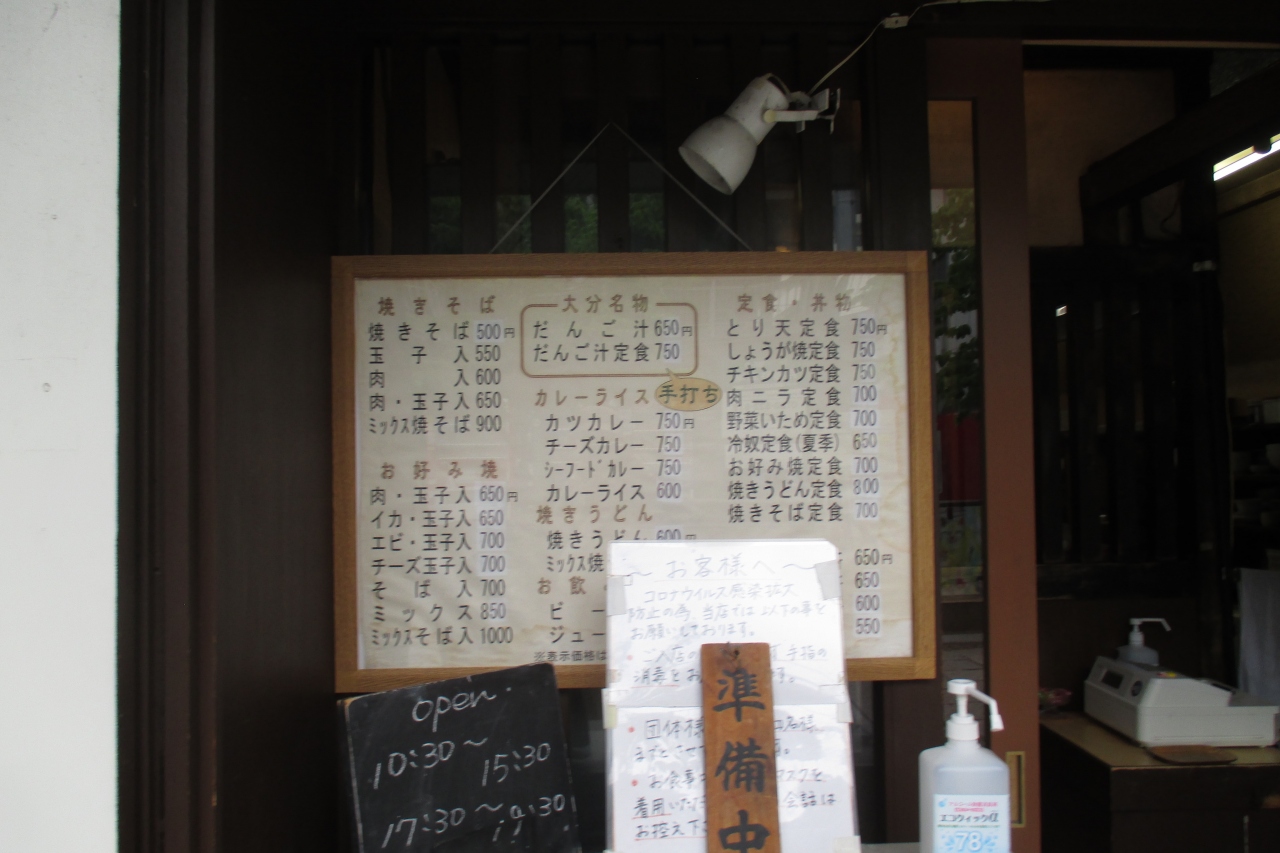 焼きそば
焼きそば 500円
玉子入 550
肉入 600
肉・玉子入 650
ミックス焼そば 900
お好み焼
肉・玉子入 650円
イカ・玉子入 650
エビ・玉子入 700
チーズ玉子入 700
そば入 700
ミックス 850
ミックスそば入 1000
大分名物
だんご汁 650円
だんご汁定食 750
手打ち
カレーライス
カツカレー 750円
チーズカレー 750
シーフードカレー 750
カレーライス 600
焼きうどん
焼きうどん 600円
ミックス焼
お飲
ビー
ジュー
※表示価格は
定食・丼物
とり天定食 750円
しょうが焼定食 750
チキンカツ定食 750
肉ニラ定食 700
野菜いため定食 700
冷奴定食(夏季) 650
お好み焼定食 700
焼きうどん定食 800
焼きそば定食 700
650円
650
600
550
open.
10:30〜
15:30
17:30〜
19:30
〜お客様へ〜
コロナウイルス感染拡大
防止の為、当店では以下の事を
お願いしております。
・ご入店の 手指の
消毒とお ます。
・団体様
までとさせて
・お食事 マスクを
着用いただ 会話は
お控え下
準備中
エコクイックα
78